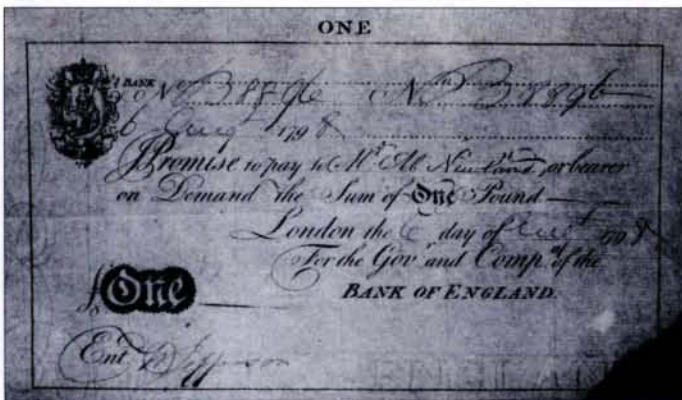 ONE
BANK
No 38896 No 38896
6 Aug 1798
I Promise to pay to Mr Ab Newland, or bearer
on Demand the Sum of One Pound
London the 6 day of Augt 1798
For the Govr and Compa of the
BANK OF ENGLAND.
£ One
Entd
ENGLAN